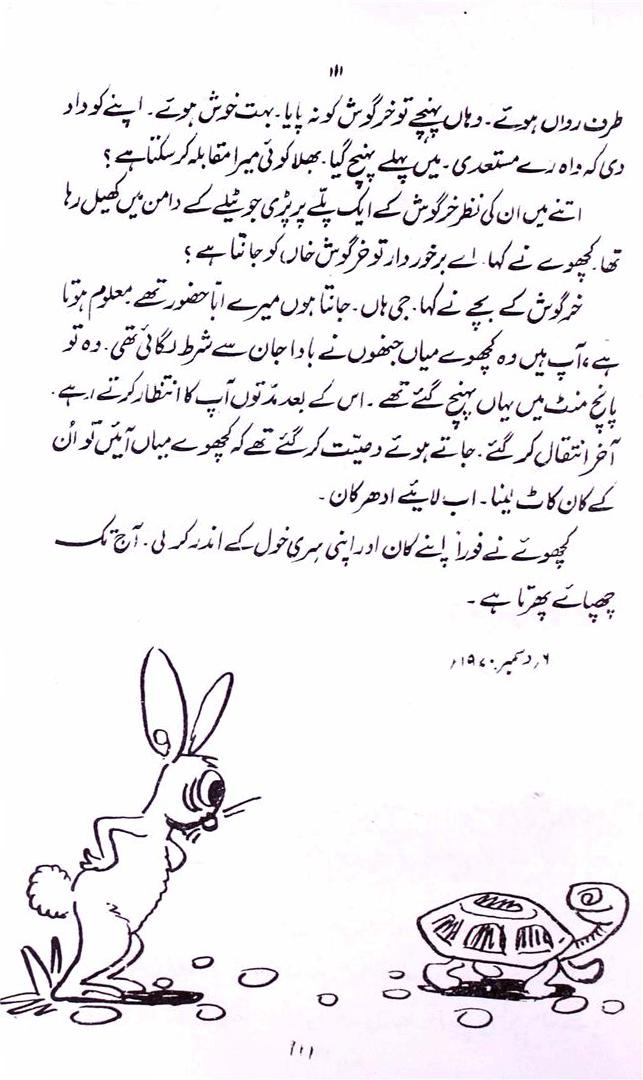 ااا
طرف رواں ہوئے۔ وہاں پہنچے تو خرگوش کو نہ پایا۔ بہت خوش ہوئے۔ اپنے کو داد
دی کہ واہ رے مستعدی۔ میں پہلے پہنچ گیا۔ بھلا کوئی میرا مقابلہ کر سکتا ہے؟
اتنے میں ان کی نظر خرگوش کے ایک پلّے پر پڑی جو ٹیلے کے دامن میں کھیل رہا
تھا۔ کچھوے نے کہا۔ اے برخوردار تو خرگوش خاں کو جانتا ہے؟
خرگوش کے بچے نے کہا۔ جی ہاں۔ جانتا ہوں میرے ابّا حضور تھے۔ معلوم ہوتا
ہے، آپ ہیں وہ کچھوے میاں جنھوں نے باوا جان سے شرط لگائی تھی۔ وہ تو
پانچ منٹ میں یہاں پہنچ گئے تھے۔ اس کے بعد مدّتوں آپ کا انتظار کرتے رہے۔
آخر انتقال کر گئے۔ جاتے ہوئے وصیّت کر گئے تھے کہ کچھوے میاں آئیں تو اُن
کے کان کاٹ لینا۔ اب لایئے ادھر کان۔
کچھوے نے فوراً اپنے کان اور اپنی سری خول کے اندر کر لی۔ آج تک
چھپائے پھرتا ہے۔
۶؍ دسمبر ۱۹۷۰ء
۱۱۱